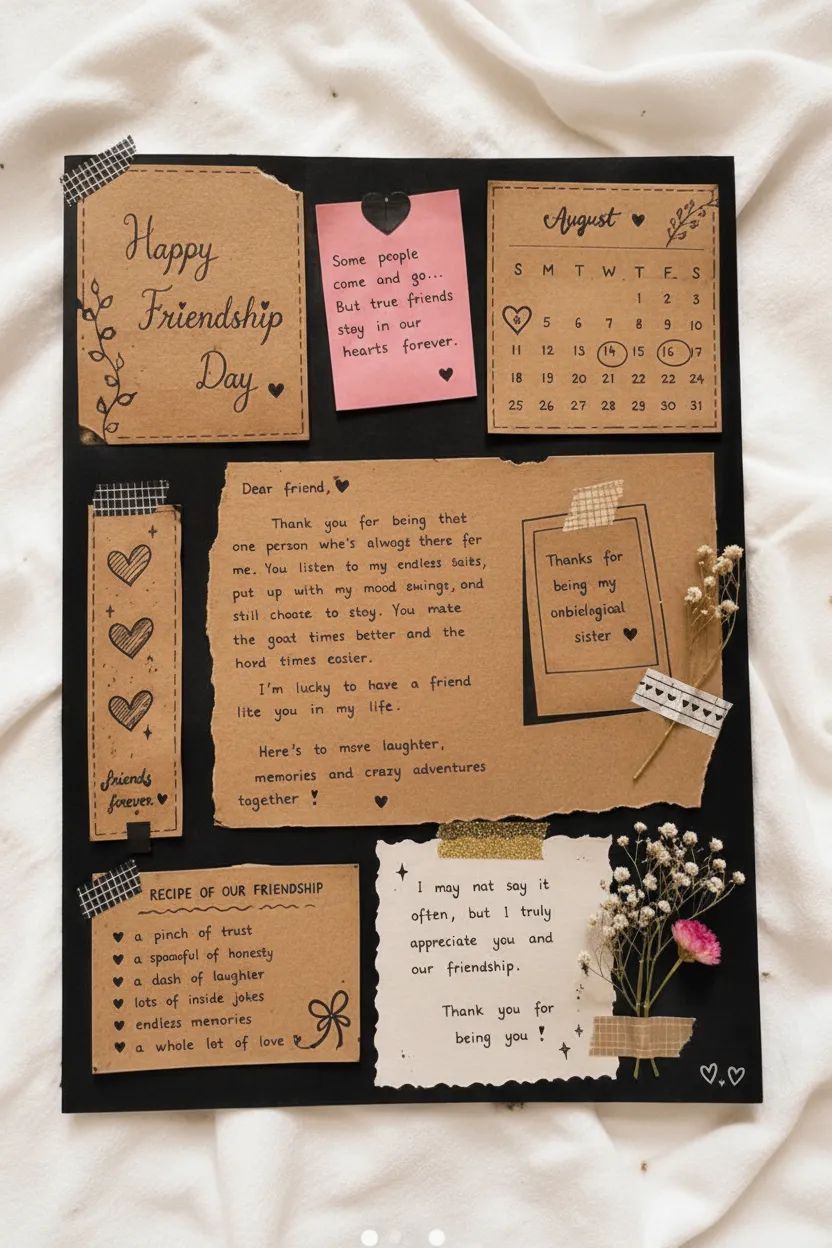 Happy
Friendship
Day
Some people
come and go...
But true friends
stay in our
hearts forever.
August
S M T W T F S
1 2 3
5 6 7 8 9 10
11 12 13 14 15 16 17
18 19 20 21 22 22 24
25 26 27 28 29 30 31
Dear friend,
Thank you for being that
one person whe's alwogt there fer
me. You listen to my endless
put up with my mood swings, and
still choate to stoy. You mate
the goat times better and the
hord times eosier.
I'm lucky to have a friend
lite you in my life.
Here's to more laughter,
memories and crazy adventures
together !
Thanks for
being my
onbielogioal
sister
friends
forever
RECIPE OF OUR FRIENDSHIP
a pinch of trust
a of honesty
a dash of laughter
lots of inside jokes
endless memories
a whole lot of love
I may nat say it
often, but I truly
appreciate you and
our friendship.
Thank you for
being you !